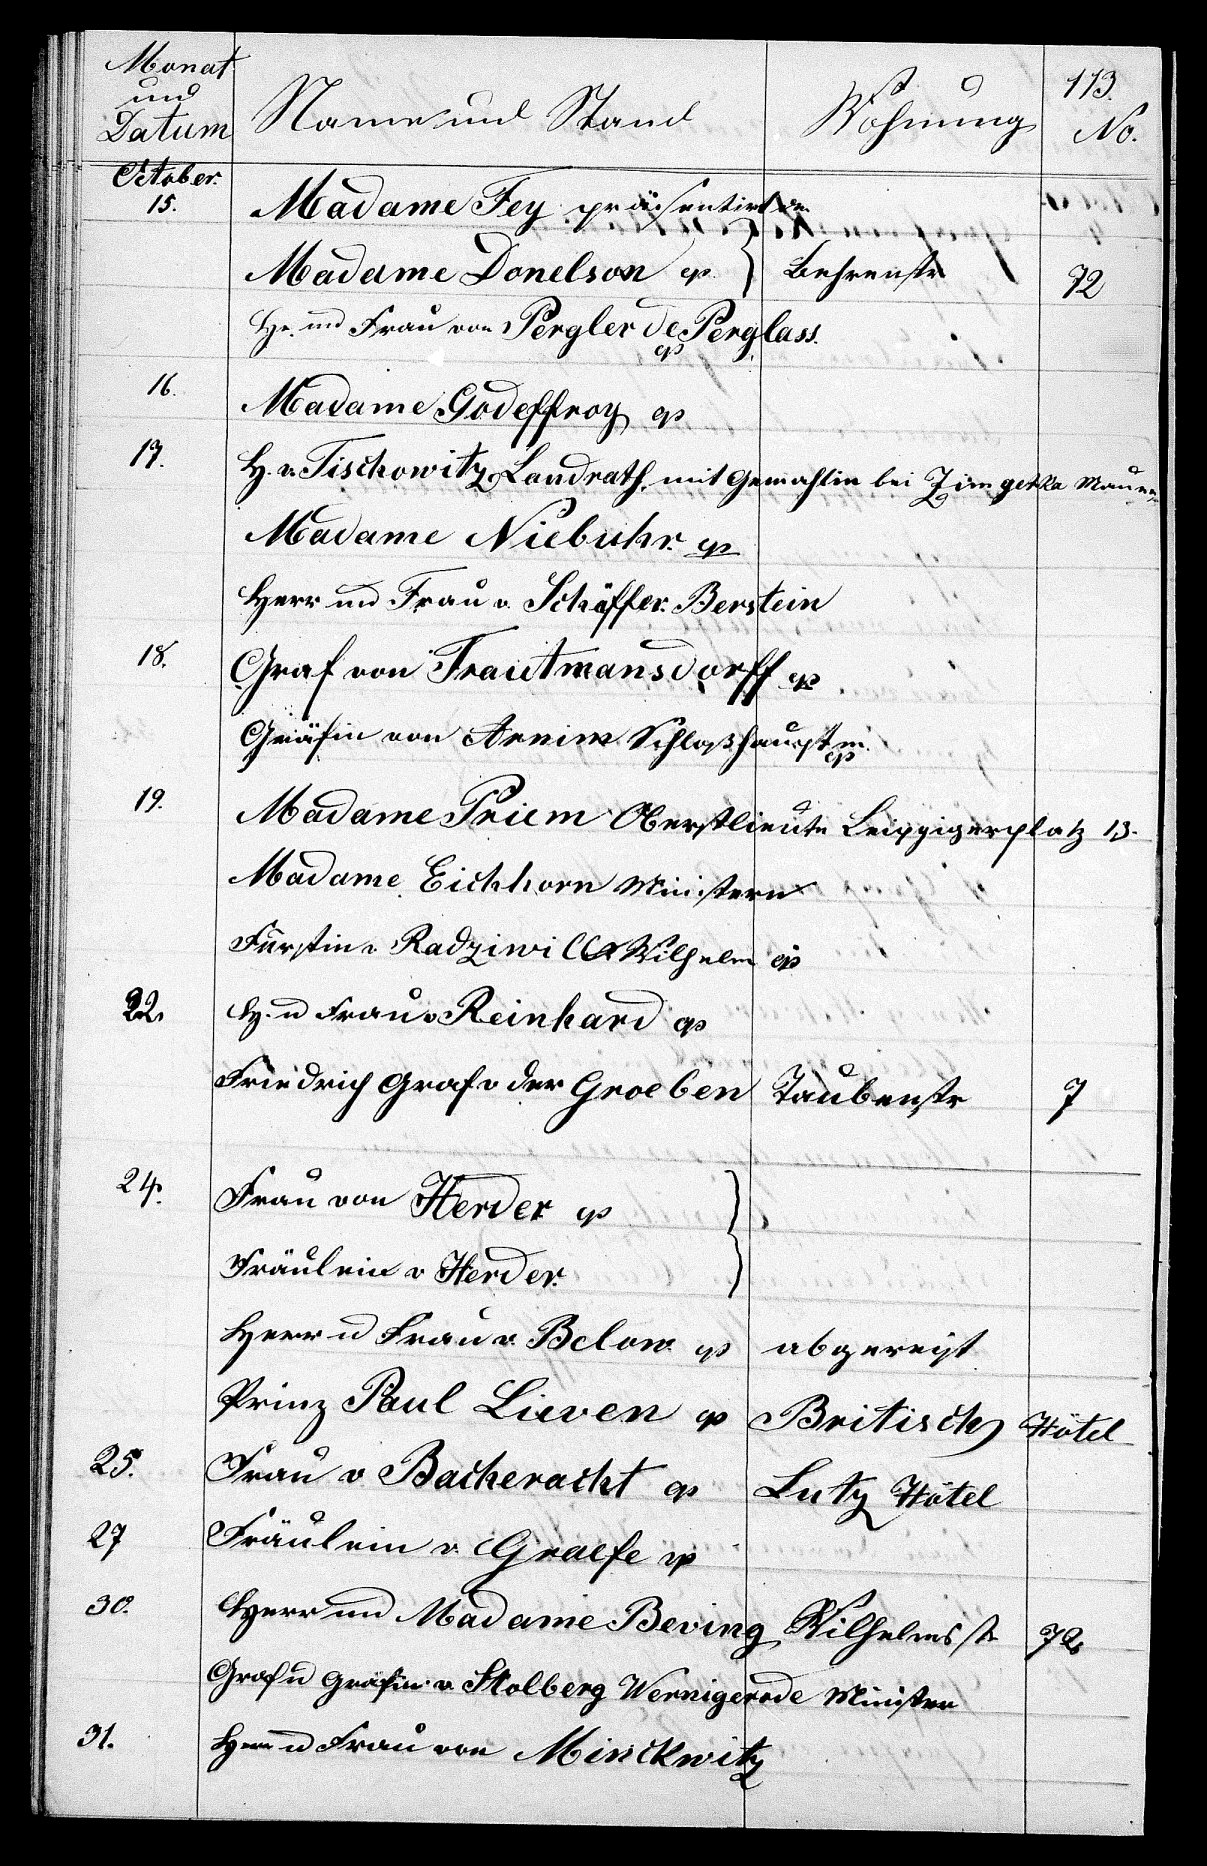 Monat und Datum Name und Stand Wohnung 113. No.
October.
15. Madame Fey präsentirt
Madame Donelson gp } Behrenstr 72
Hr. und Frau von Pergler de Perglass. gp
16. Madame Godeffroy gp
17. H. v. Tischowitz, Landrath, mit Gemahlin bei
Madame Niebuhr. gp
Herr und Frau v. Schäffer. Berstein
18. Graf von Trautmansdorff gp
Gräfin von Arnim Schloßhauptm. gp
19. Madame Priem Oberstlieute Leipzigerplatz 13.
Madame Eichhorn Ministern
Fürstin v Radziwill Wilhelm gp
22. H. u Frau v Reinhard gp
Friedrich Graf v der Groeben Taubenstr 7
24. Frau von Herder gp }
Fräulein v Herder. }
Herr u Frau v. Below gp abgereist
Prinz Paul Lieven gp Britisch Hôtel
25. Frau v Bacheracht gp Lutz Hôtel
27 Fräulein v. Graefe gp
30. Herr und Madame Beving Wilhelmsstr 72
Graf u Gräfin v Stolberg Wernigerode Minister
31. Herr u Frau von Minckwitz